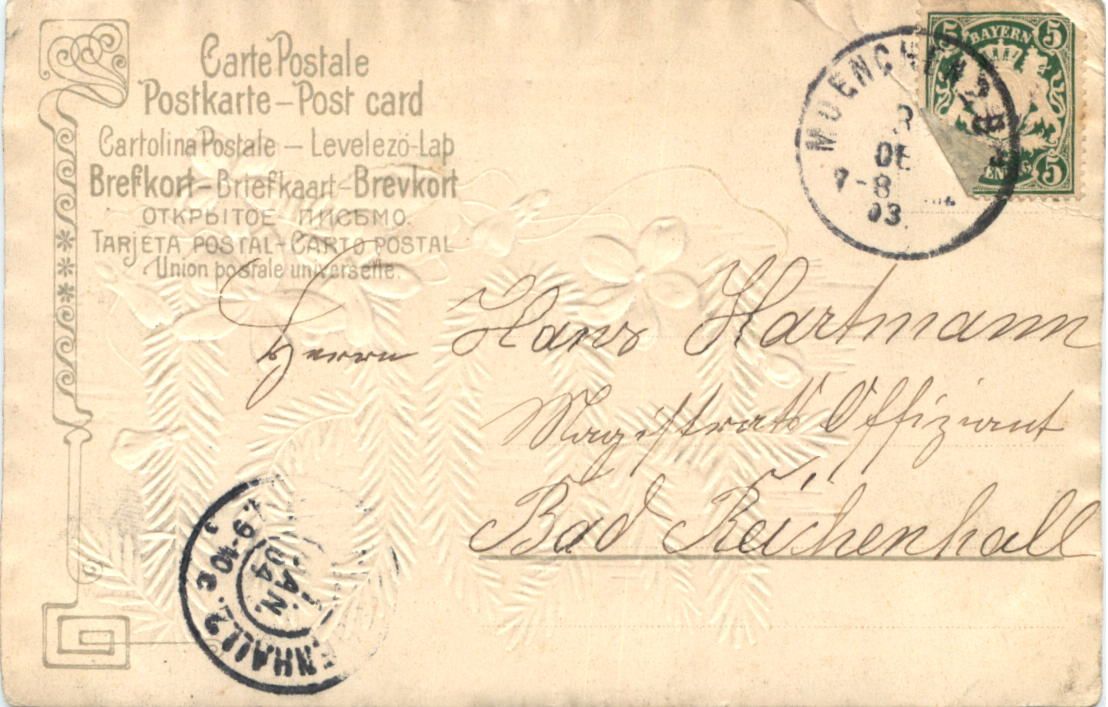 Carte Postale
Postkarte – Post card
Cartolina Postale – Levelező-Lap
Brefkort – Briefkaart – Brevkort
ОТКРЫТОЕ ПИСЬМО.
TARJETA POSTAL – CARTO POSTAL
Union postale universelle.
5 BAYERN 5
5
MUENCHEN 2
DE
7-8
03
Herrn Hans Hartmann
Magistrats Offiziant
Bad Reichenhall
9-10
JAN.
04
ENHALL 2